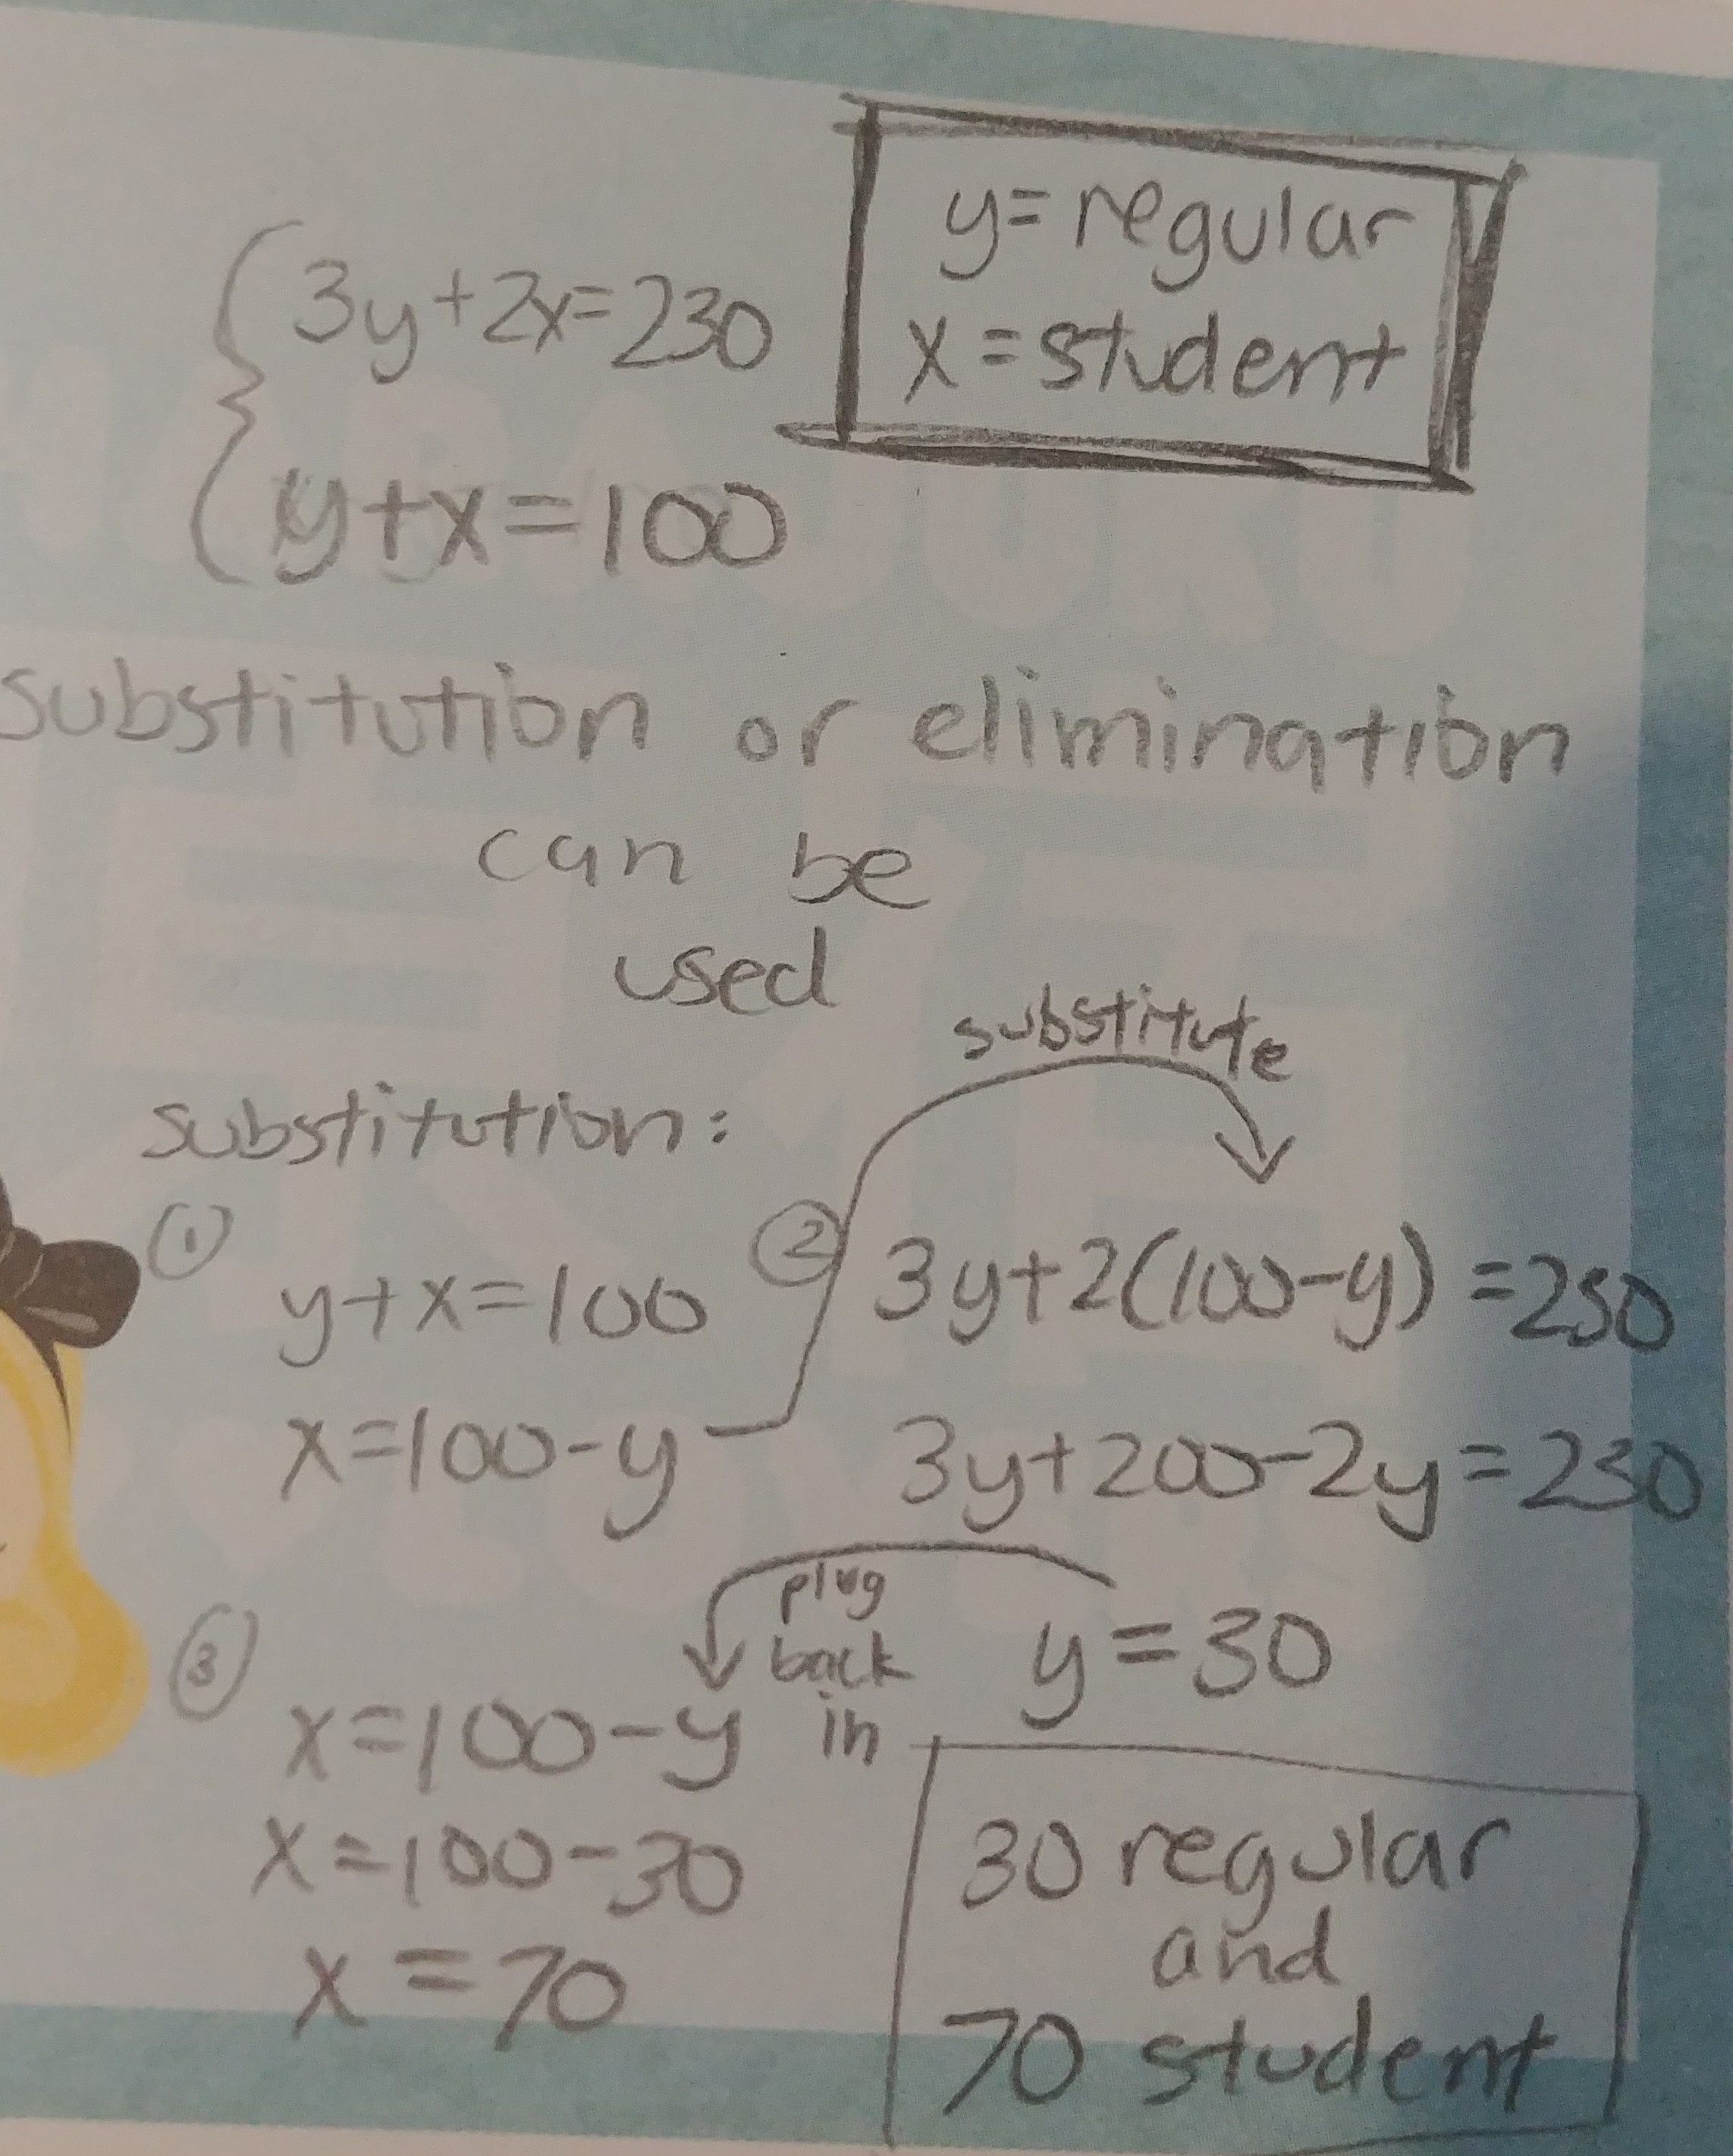 y=regular
x=student
3y+2x=230
y+x=100
substitution or elimination
can be
used
substitute
substitution:
①
y+x=100
x=100-y
②
3y+2(100-y)=230
3y+200-2y=230
y=30
plug
back
in
③
x=100-y
x=100-30
x=70
30 regular
and
70 student